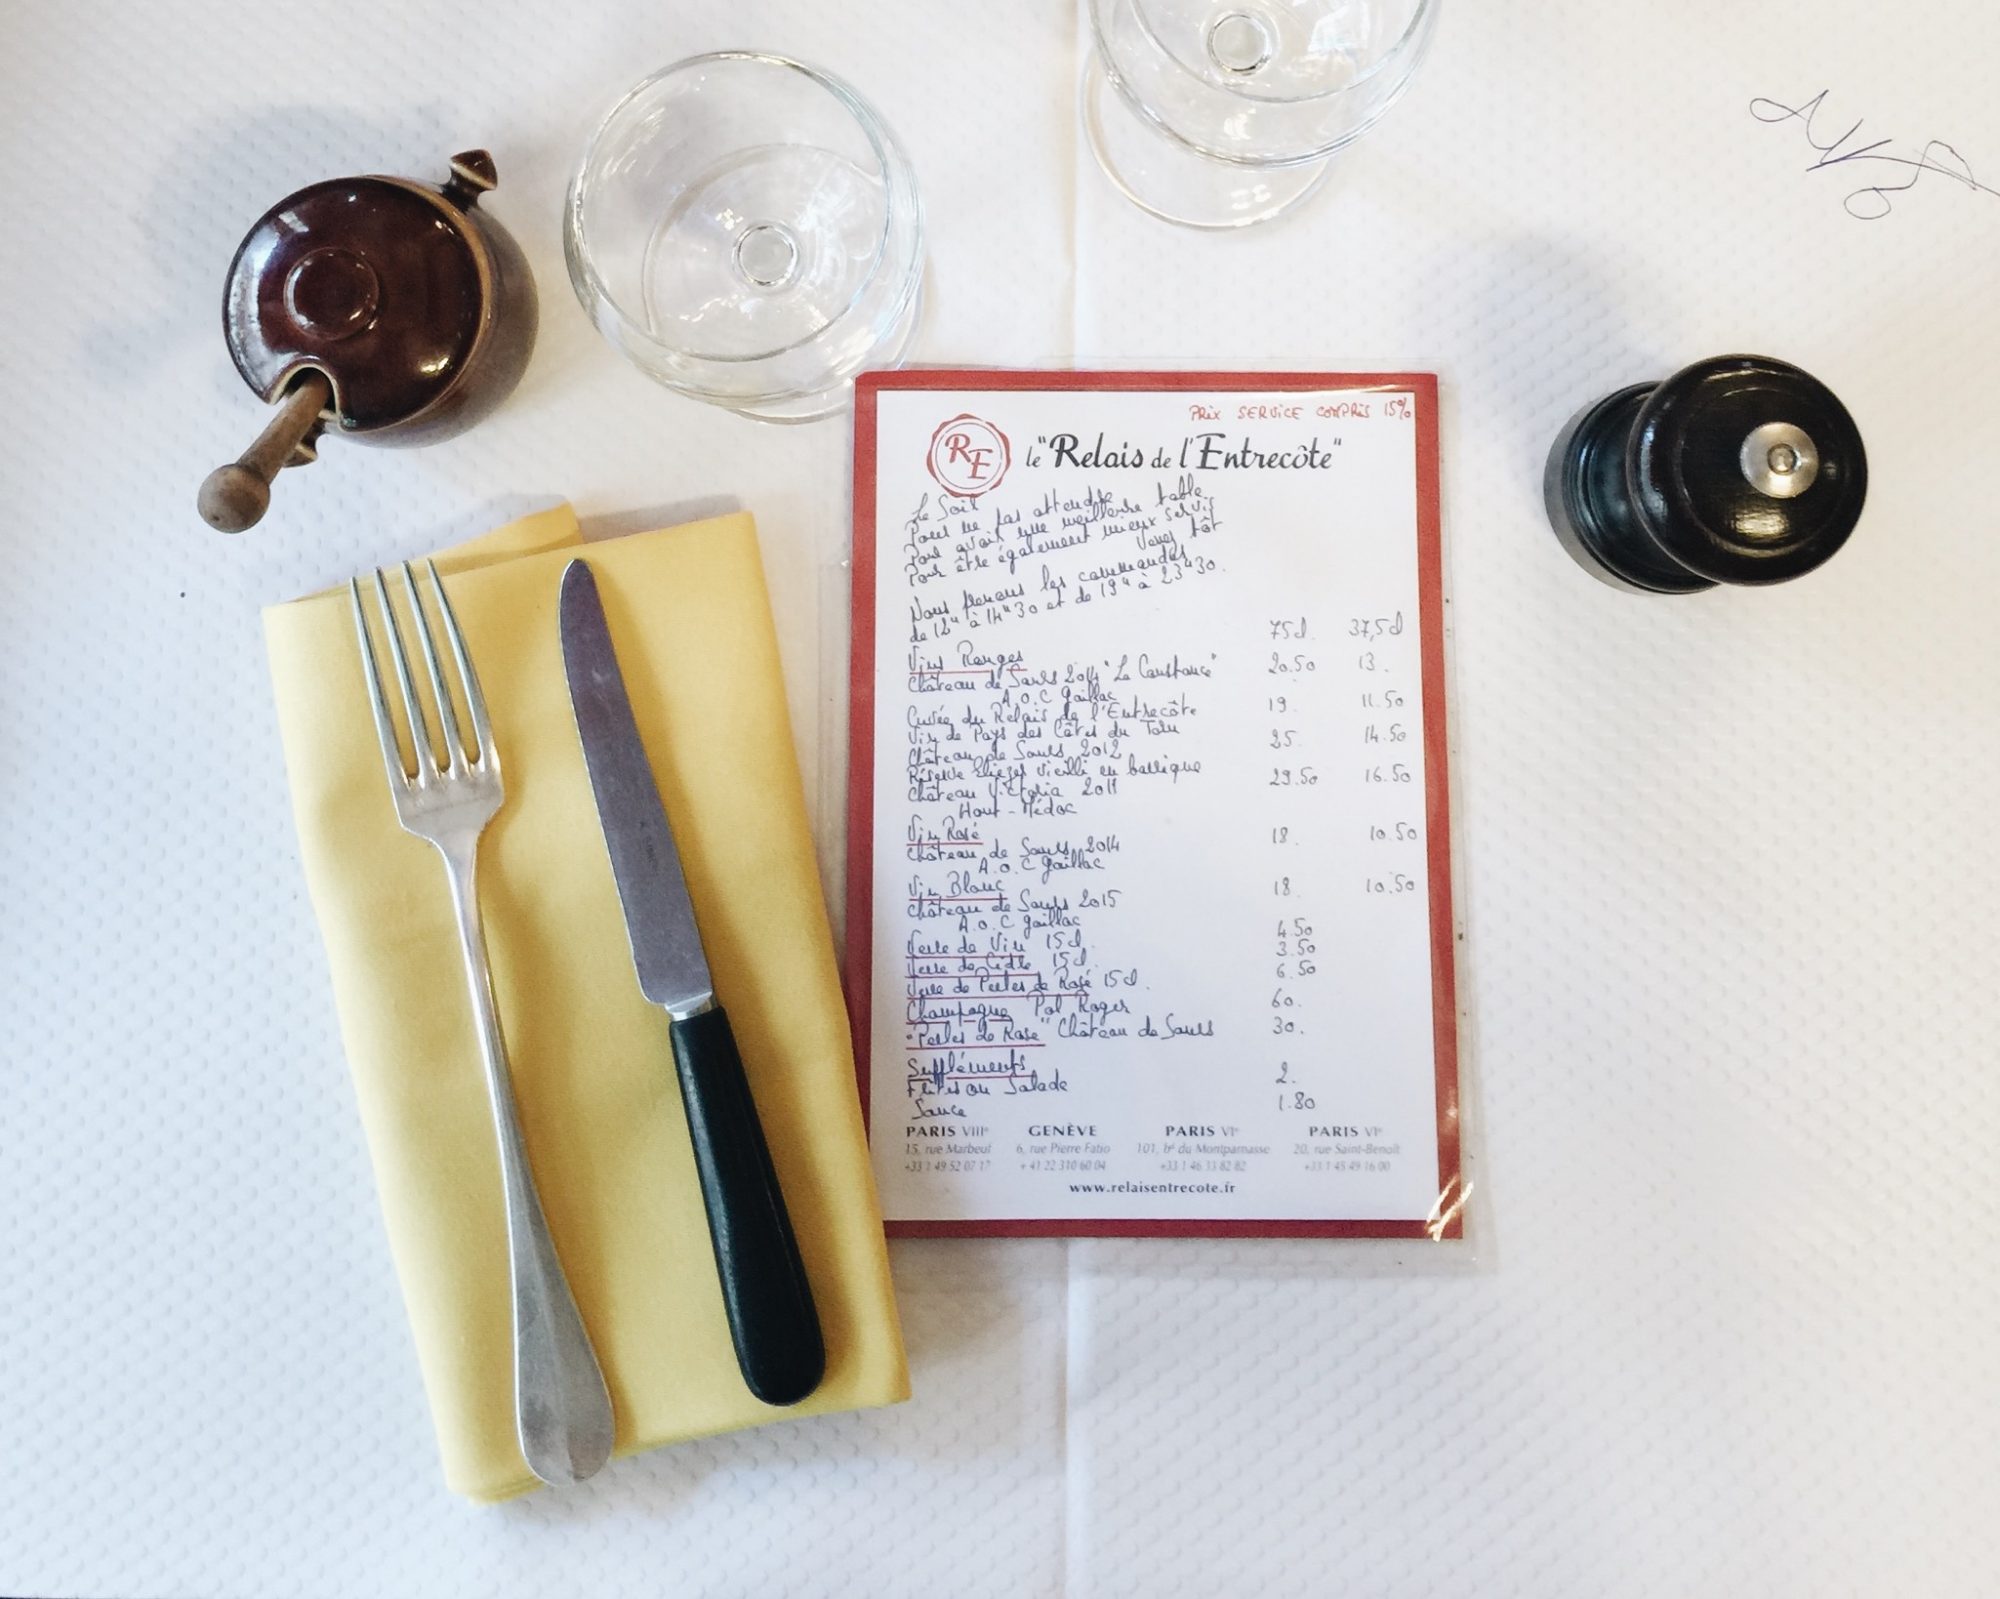 PRIX SERVICE COMPRIS 15%
RE
le "Relais de l'Entrecôte"
Le Soir
Pour ne pas attendre
Pour avoir une meilleure table
Pour être également mieux servis
Venez tôt
Nous prenons les commandes
de 12H à 14H30 et de 19H à 23H30.
75cl. 37,5cl
Vins Rouges
Château de Saurs 2014 "La Constance" 20.50 13.
A.O.C Gaillac
Cuvée du Relais de l'Entrecôte 19. 11.50
Vin de Pays des Côtes du Tarn
Château de Saurs 2012 25. 14.50
Réserve Eliezer vieilli en barrique
Château Victoria 2011 29.50 16.50
Haut-Médoc
Vin Rosé
Château de Saurs 2014 18. 10.50
A.O.C Gaillac
Vin Blanc
Château de Saurs 2015 18. 10.50
A.O.C Gaillac
Verre de Vin 15cl. 4.50
Verre de Cidre 15cl. 3.50
Verre de Perles de Rosé 15cl. 6.50
Champagne Pol Roger 60.
"Perles de Rose" Château de Saurs 30.
Suppléments
Frites ou Salade 2.
Sauce 1.80
PARIS VIIIe GENÈVE PARIS VIe PARIS VIe
15, rue Marbeuf 6, rue Pierre Fatio 101, bd du Montparnasse 20, rue Saint-Benoît
+33 1 49 52 07 17 +41 22 310 60 04 +33 1 46 33 82 82 +33 1 45 49 16 00
www.relaisentrecote.fr